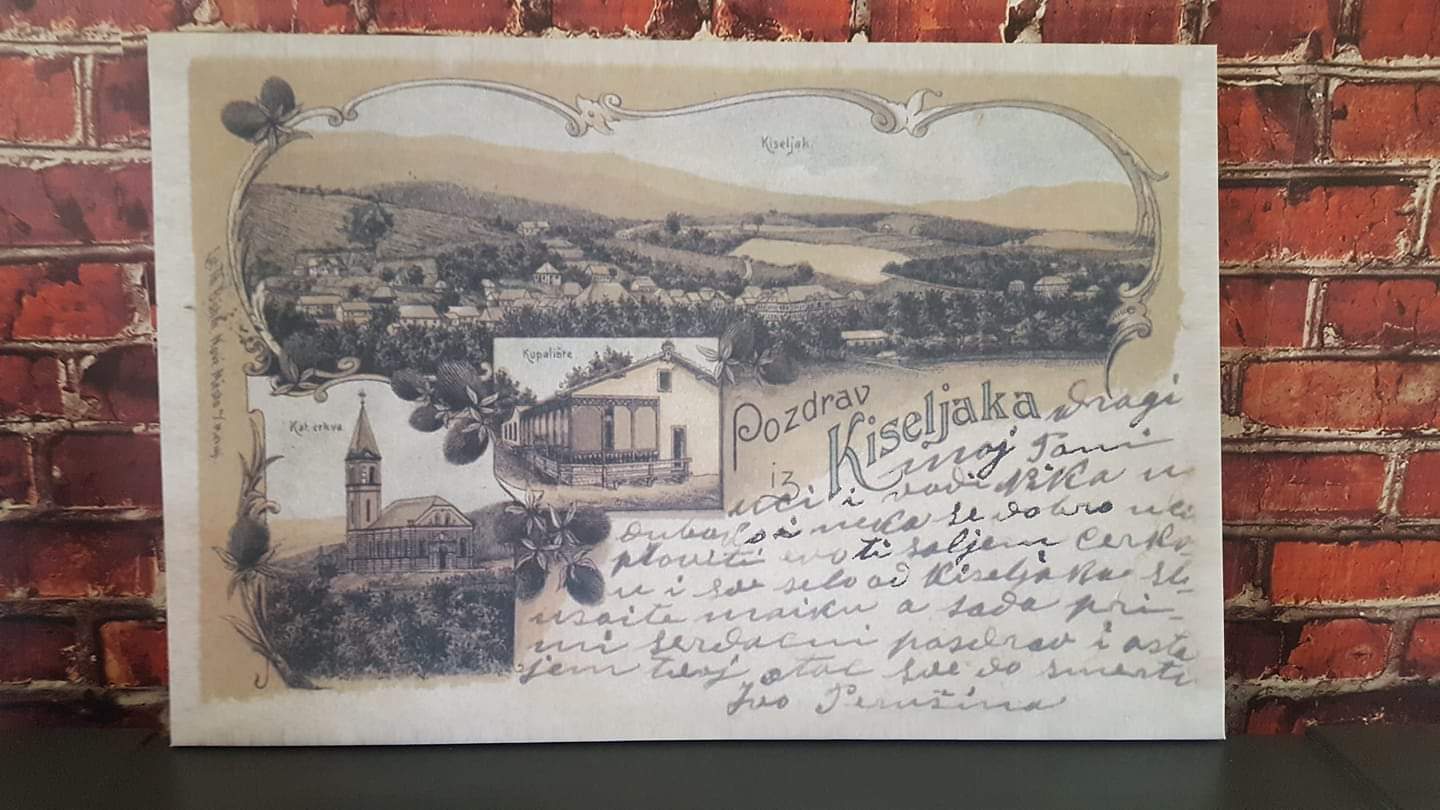 Kiseljak.
Kupalište
Kat. crkva
Pozdrav
iz Kiseljaka
Dragi
moj Toni
uci i vodi Nika u
duboko i neka se dobro uci
ploviti evo ti saljem cerkv
u i sve selo od Kiseljaka sl
usaite maiku a sada pri-
mi serdacni pozdrav i osta
jem tvoj otac sve do smerti
Ivo Perušina